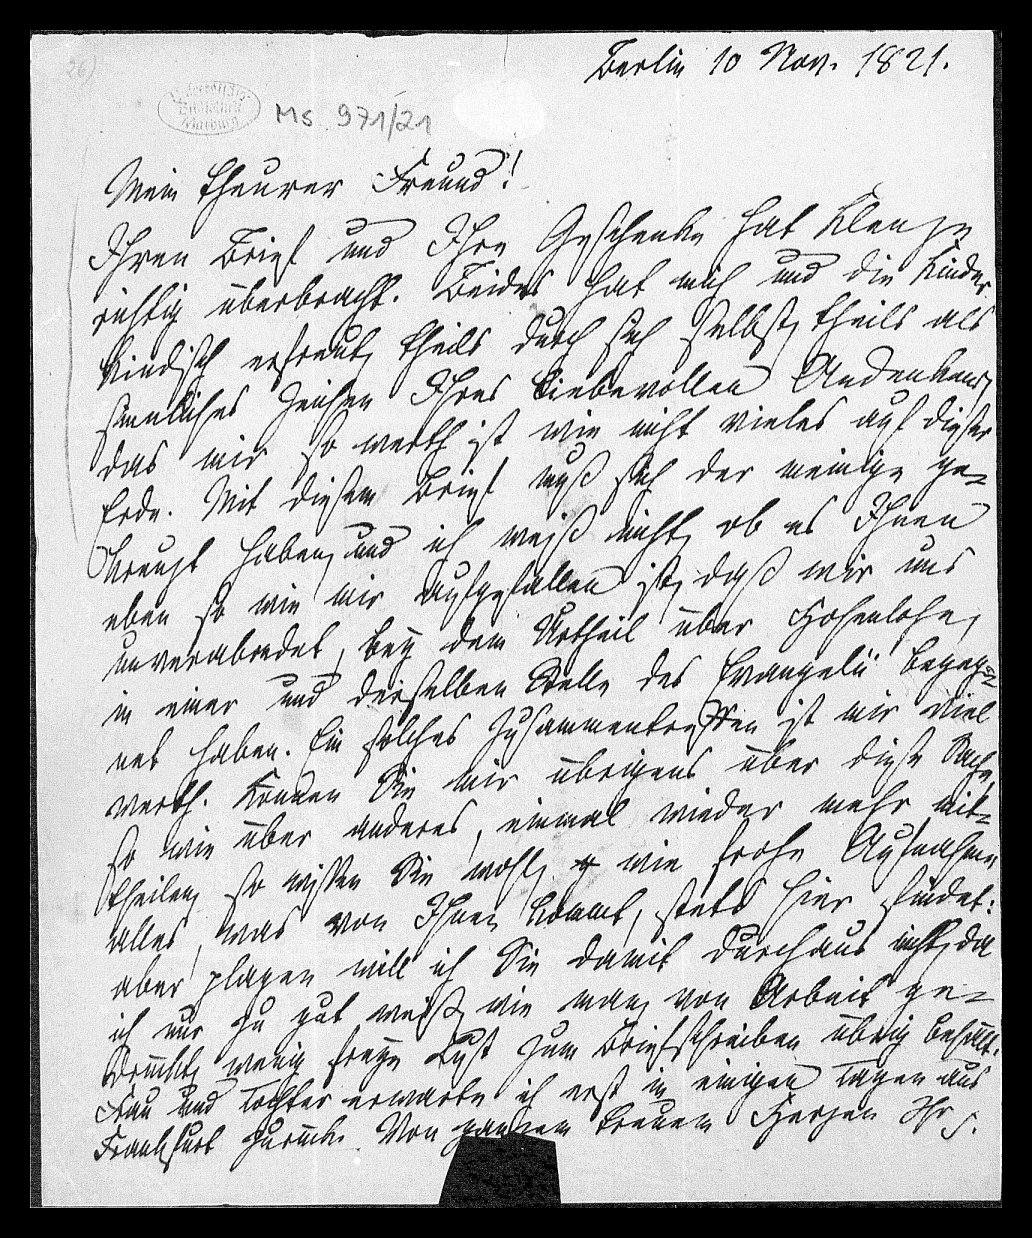 26)
Universitäts
Bibliothek
Marburg
Ms 971/21
Berlin 10 Nov. 1821.
Mein theurer Freund!
Ihren Brief und Ihre Geschenke hat Klenze
richtig überbracht. Beides hat mich und die Kinder
kindisch erfreut, theils durch sich selbst, theils als
sinnliches Zeichen Ihres liebevollen Andenkens,
das mir so werth ist wie nicht vieles auf dieser
Erde. Mit diesem Brief muß sich der meinige ge-
kreuzt haben, und ich weiß nicht, ob es Ihnen
eben so wie mir aufgefallen ist, daß wir uns
unverabredet, bey dem Urtheil über Hohenlohe,
in einer und derselben Stelle des Evangelii begeg-
net haben. Ein solches Zusammentreffen ist mir viel
werth. Können Sie mir übrigens über diese Sache,
so wie über anderes, einmal wieder mehr mit-
theilen, so wissen Sie wohl, wie frohe Aufnahme
alles, was von Ihnen kommt, stets hier findet:
aber plagen will ich Sie damit durchaus nicht, da
ich nur zu gut weiß, wie man, von Arbeit ge-
drückt, wenig freye Lust zum Briefschreiben übrig behält.
Frau und Tochter erwarte ich erst in einigen Tagen aus
Frankfurt zurück. Von ganzem treuem Herzen Ihr S.